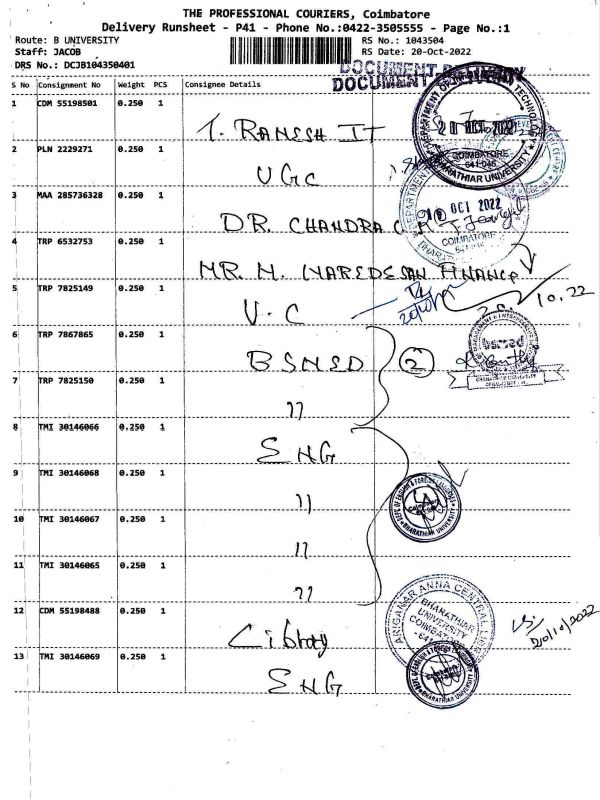 THE PROFESSIONAL COURIERS, Coimbatore
Delivery Runsheet - P41 - Phone No.:0422-3505555 - Page No.:1
Route: B UNIVERSITY
RS No.: 1043504
Staff: JACOB
RS Date: 20-Oct-2022
DRS No.: DCJB104350401
S No Consignment No Weight PCS Consignee Details
1 CDM 55198501 0.250 1
T. RAMESH IT
2 PLN 2229271 0.250 1
UGC
3 MAA 285736328 0.250 1
DR. CHANDRA
4 TRP 6532753 0.250 1
MR. M. FINANCE
5 TRP 7825149 0.250 1
V.C
6 TRP 7867865 0.250 1
BSMED
7 TRP 7825150 0.250 1
"
8 TMI 30146066 0.250 1
ENG
9 TMI 30146068 0.250 1
"
10 TMI 30146067 0.250 1
"
11 TMI 30146065 0.250 1
"
12 CDM 55198488 0.250 1
Library
13 TMI 30146069 0.250 1
ENG
DOCUMENT
COIMBATORE
641 046
BHARATHIAR UNIVERSITY
OCT 2022
COIMBATORE
10.22
2
bsmed
DEPT. OF ENGLISH & FOREIGN LANGUAGES
BHARATHIAR UNIVERSITY
ANNA CENTRAL
BHARATHIAR
UNIVERSITY
20/10/2022
BHARATHIAR UNIVERSITY